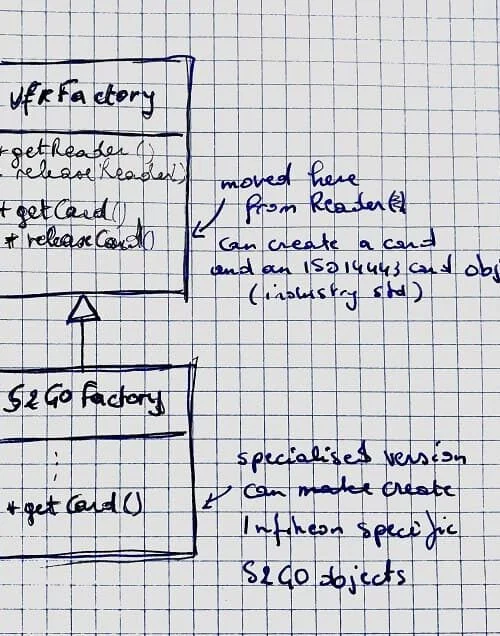 VfRFactory
+ getReader()
releaseReader()
+ getCard()
+ releaseCard()
moved here
from Reader
can create a card
and an ISO14443 card obj
(industry std)
S2GO Factory
+ getCard()
specialised version
can make create
Infineon specific
S2GO objects